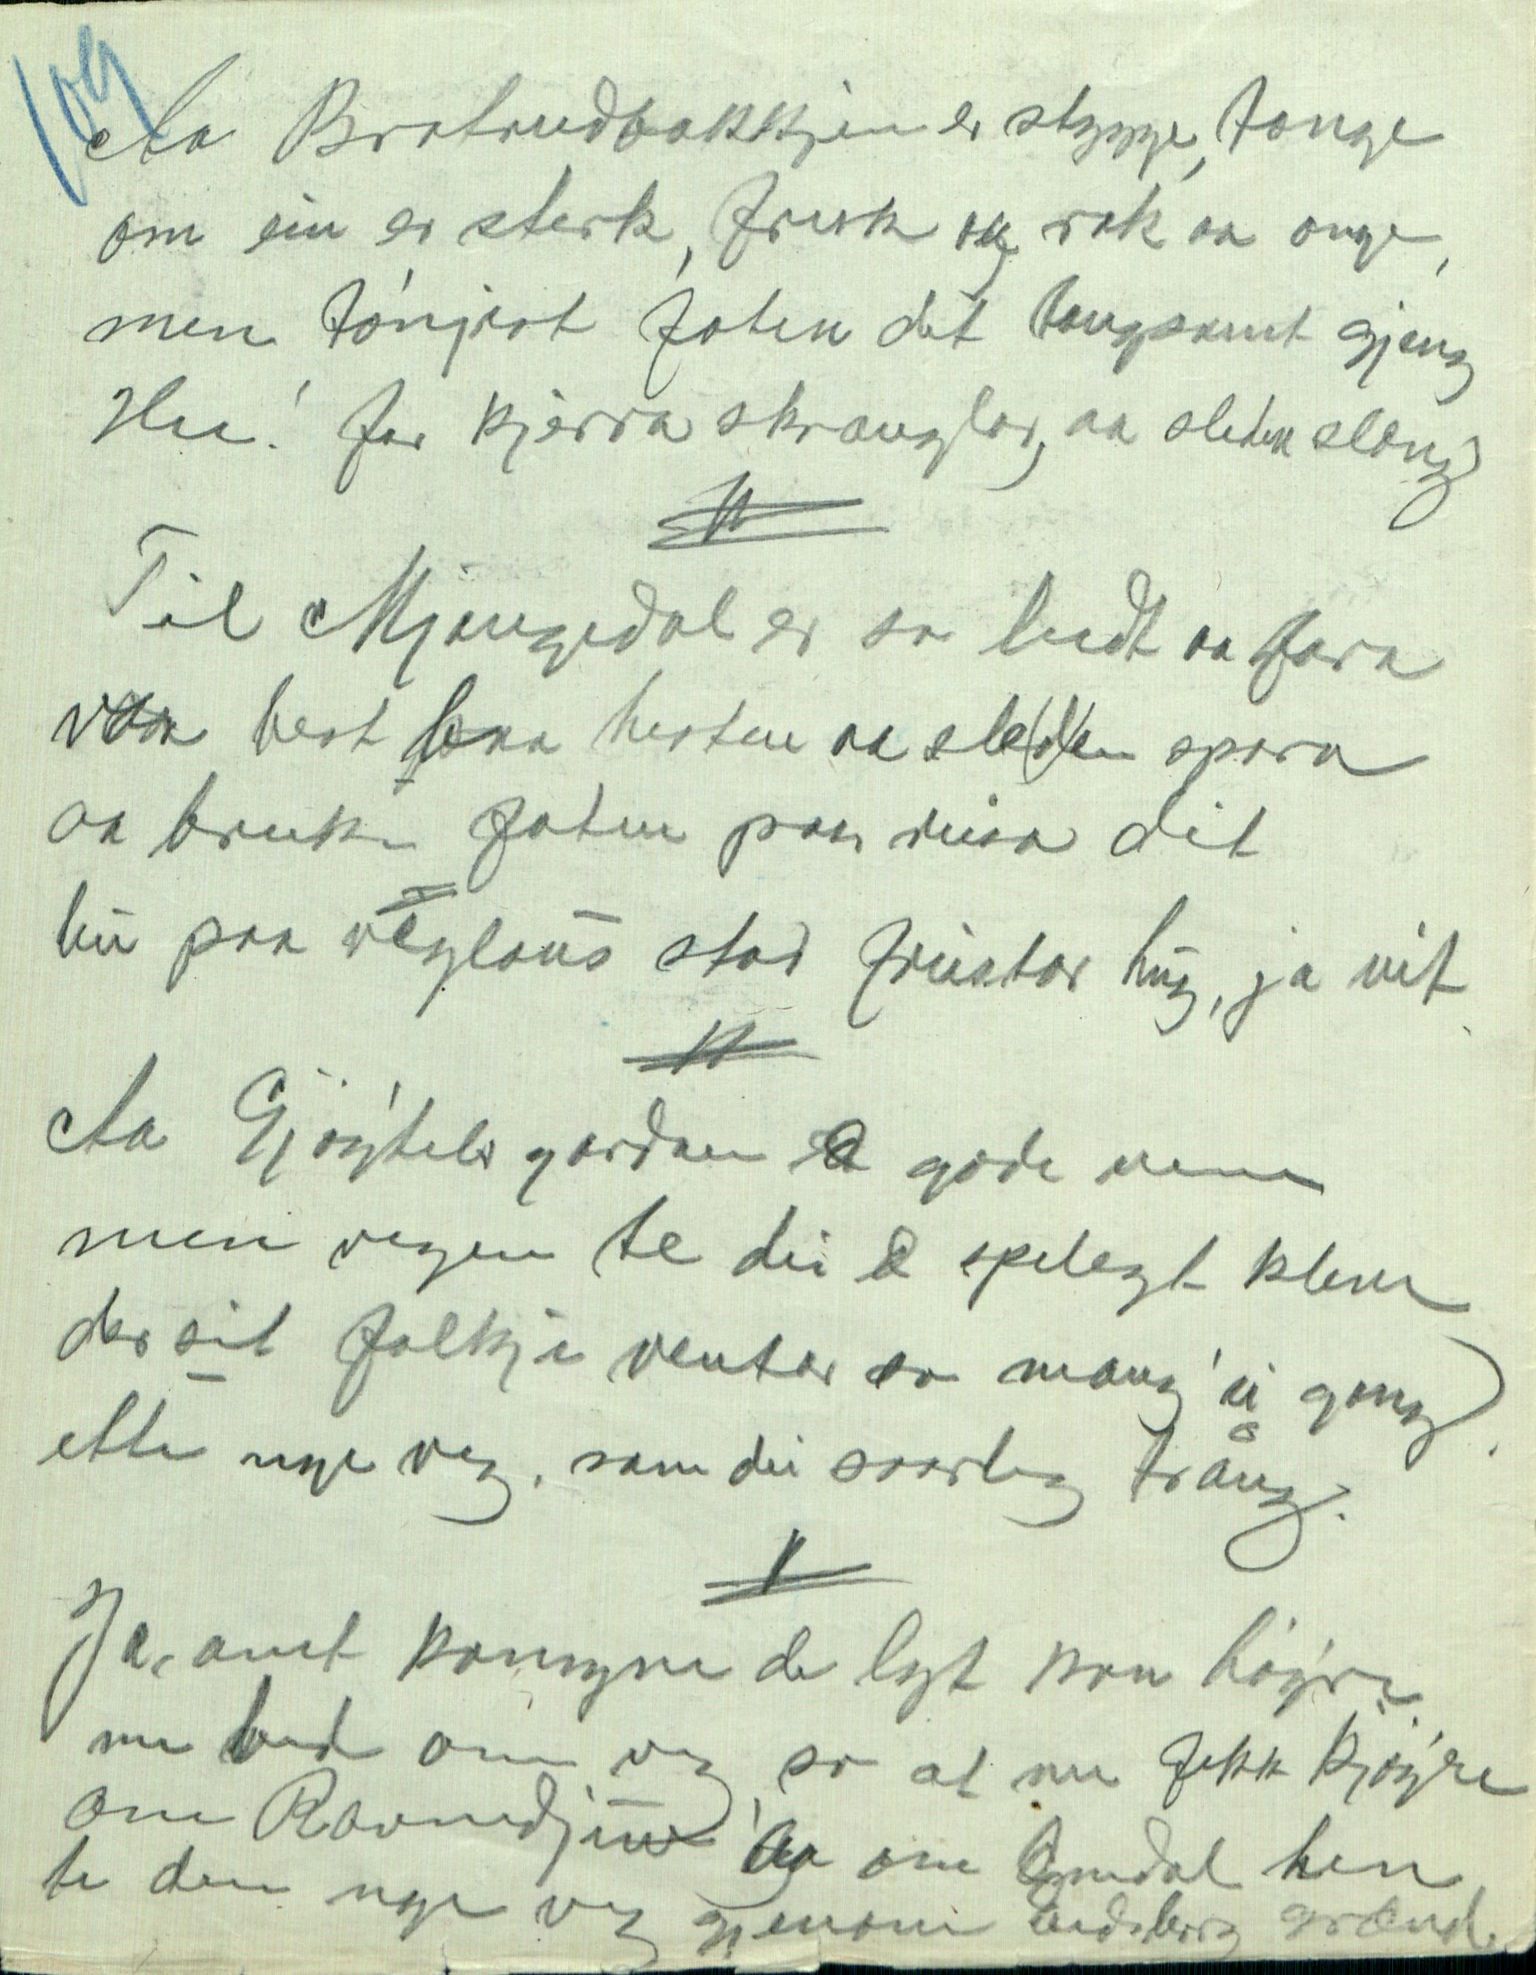 109
Aa Bratrudbakkjen er stygge, tonge
om ein er sterk, frisk og rak aa onge,
men tónjest foten det tongsamt gjeng
Hu! for kjerra skranglar, aa sleden sleng
Til Mjaugedal er so leidt aa fara
best hesten aa sleden spara
aa bruke foten paa reisa dit
hu paa veglaus stad friistar hug, ja vit.
Aa Gjøytilgardan e gode vener
men vegen te dei e spelegt klene
der sit folkje ventar so mang' ei gong
ette nye veg, som dei saarleg trång.
Ja, amt komyne de lyt kon høyre
me bed om veg, so at me fekk kjøyre
om Ravnedjuv aa om dal hen
te den nye veg gjenom grænd.